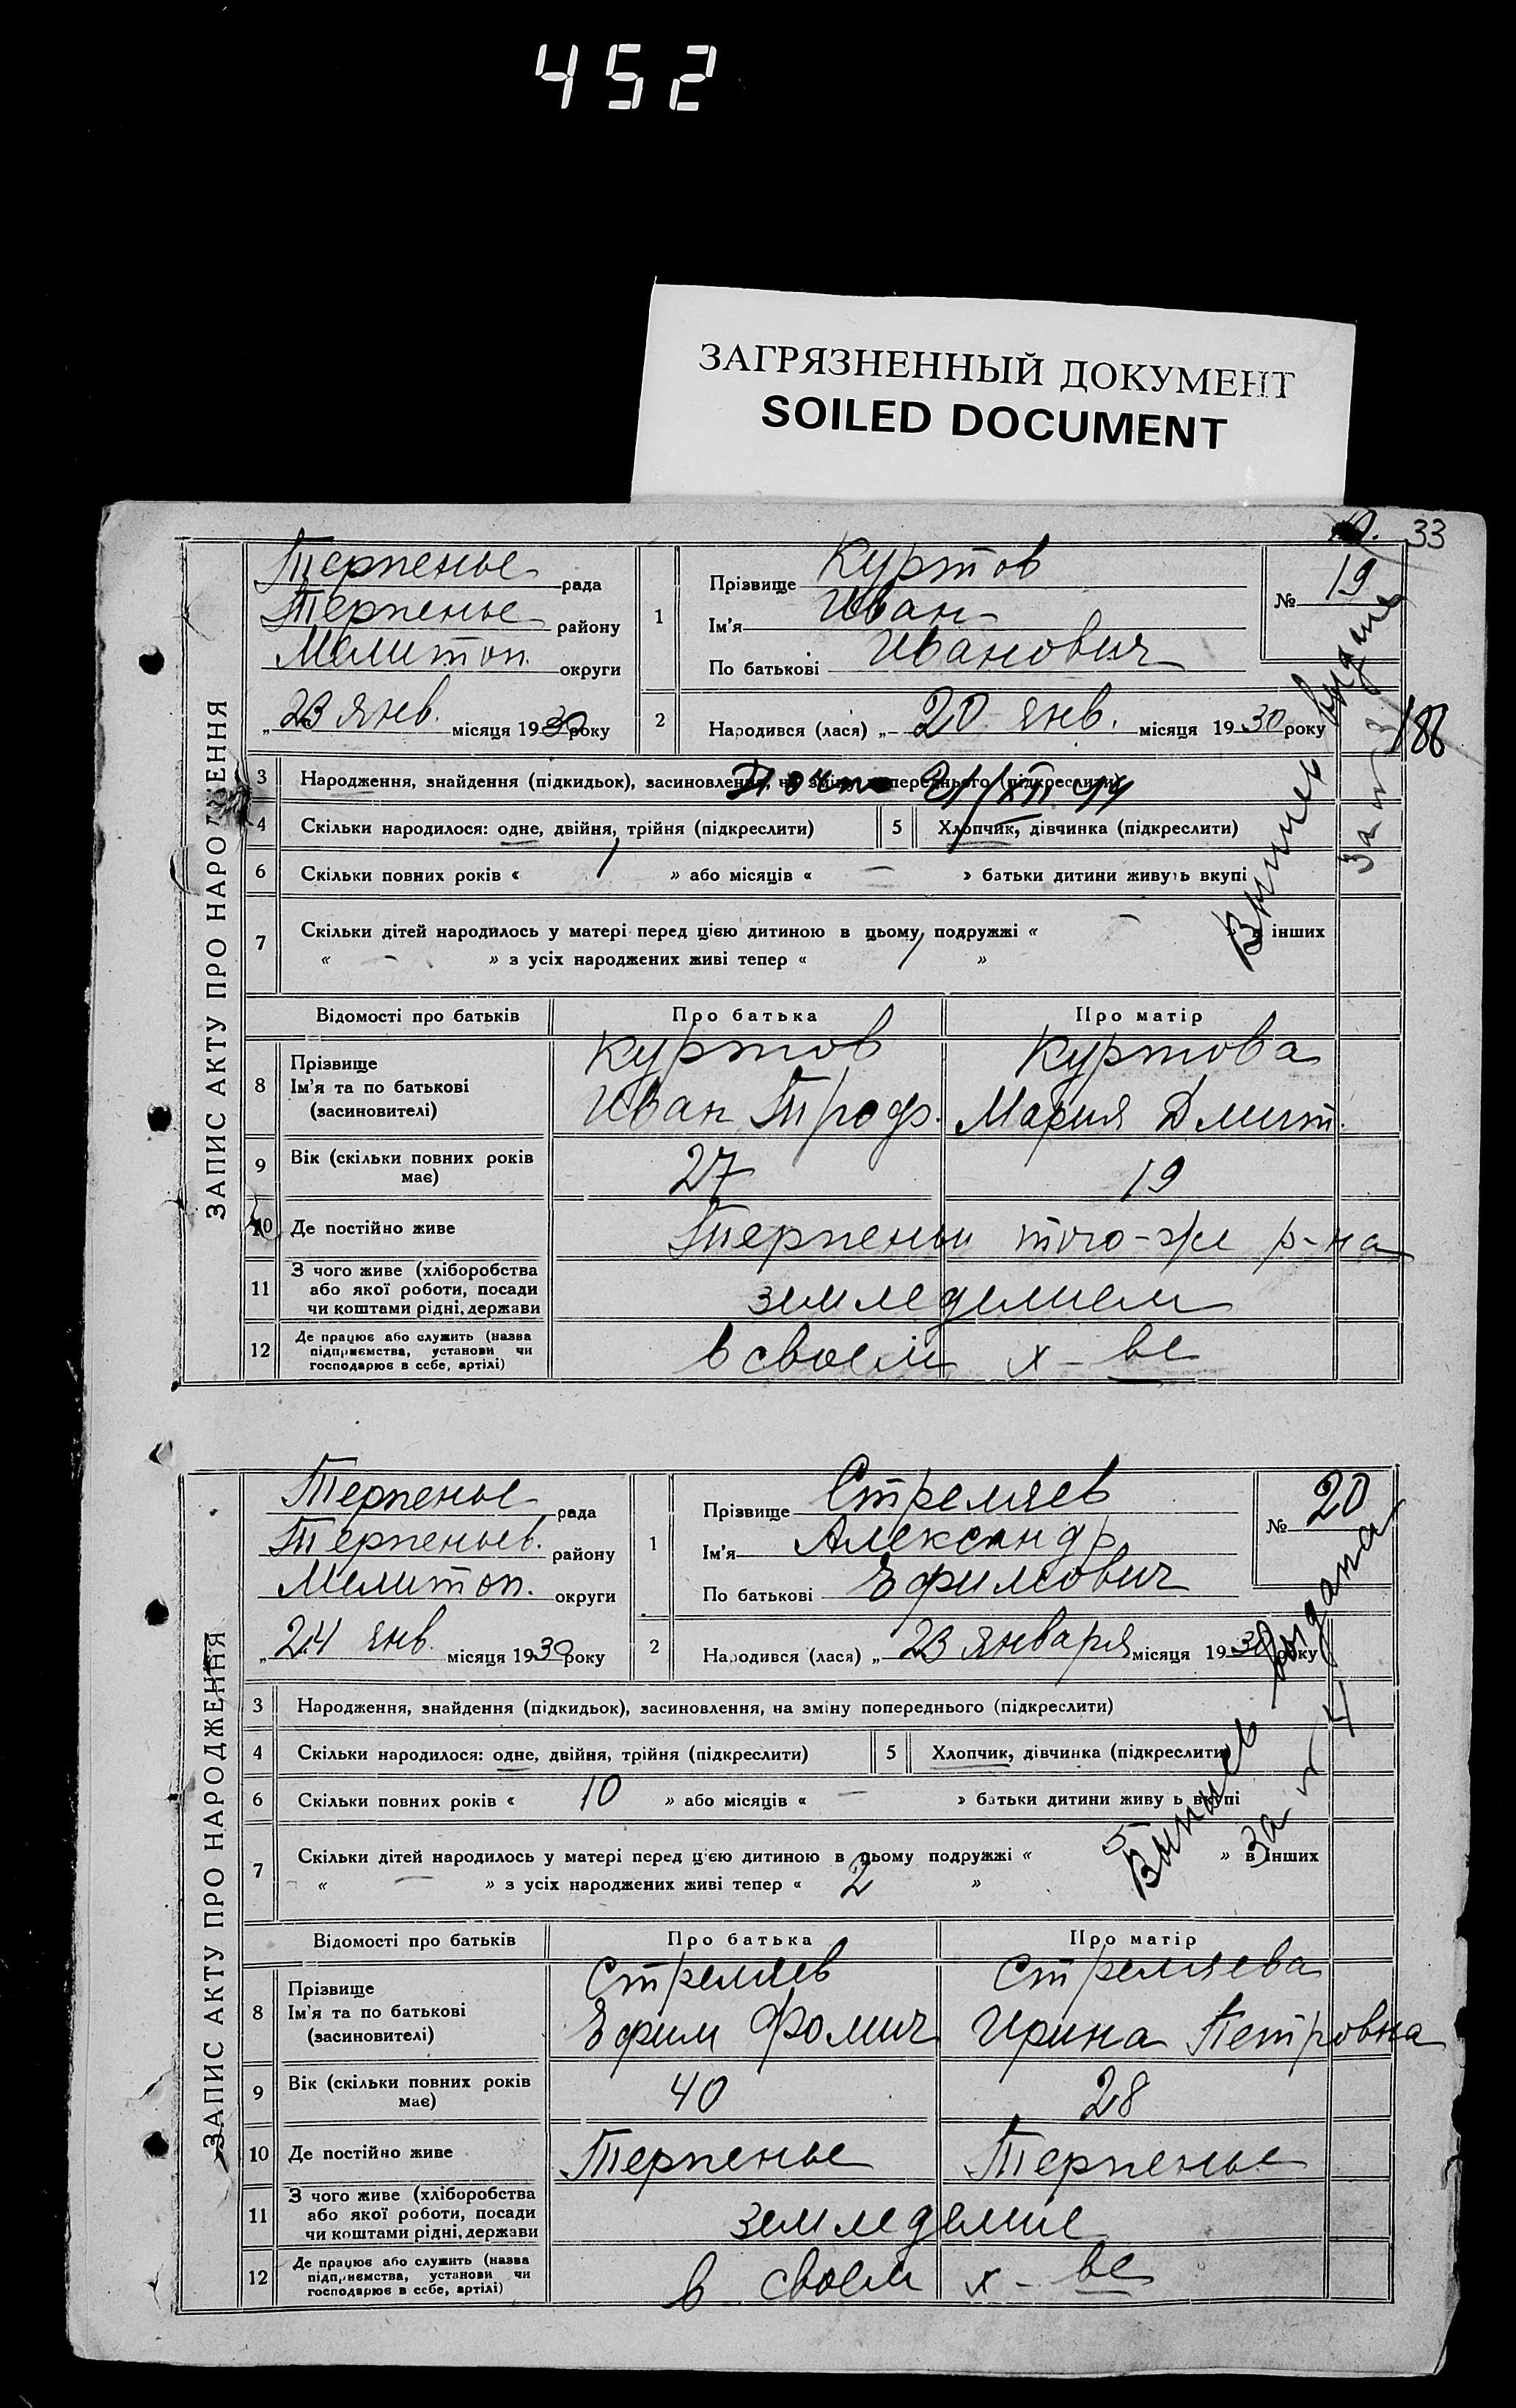 452
ЗАГРЯЗНЕННЫЙ ДОКУМЕНТ
SOILED DOCUMENT
33
ЗАПИС АКТУ ПРО НАРОДЖЕННЯ
Терпенье рада
Терпенье району
Мелитоп. округи
„ 23 янв. місяця 1930 року
1
Прізвище Куртов
Ім'я Иван
По батькові Иванович
№ 19
2
Народився (лася) „ 20 янв. місяця 1930 року
188
3 Народження, знайдення (підкидьок), засиновлення, на зміну попереднього (підкреслити)
4 Скільки народилося: одне, двійня, трійня (підкреслити) 5 Хлопчик, дівчинка (підкреслити)
6 Скільки повних років « 1 » або місяців « — » батьки дитини живуть вкупі
7 Скільки дітей народилось у матері перед цією дитиною в цьому подружжі « — » в інших
« — » з усіх народжених живі тепер « 1 »
Выпись выдана
за № 3
Відомості про батьків Про батька Про матір
8 Прізвище Ім'я та по батькові (засиновителі) Куртов Иван Троф. Куртова Мария Дмит.
9 Вік (скільки повних років має) 27 19
10 Де постійно живе Терпенья того-же р-на
11 З чого живе (хліборобства або якої роботи, посади чи коштами рідні, держави земледелием
12 Де працює або служить (назва підприємства, установи чи господарює в себе, артілі) в своем х-ве
ЗАПИС АКТУ ПРО НАРОДЖЕННЯ
Терпенье рада
Терпеньев. району
Мелитоп. округи
„ 24 янв. місяця 1930 року
1
Прізвище Стреляев
Ім'я Александр
По батькові Ефимович
№ 20
2
Народився (лася) „ 23 января місяця 1930 року
3 Народження, знайдення (підкидьок), засиновлення, на зміну попереднього (підкреслити)
4 Скільки народилося: одне, двійня, трійня (підкреслити) 5 Хлопчик, дівчинка (підкреслити)
6 Скільки повних років « 10 » або місяців « — » батьки дитини живуь вкупі
7 Скільки дітей народилось у матері перед цією дитиною в цьому подружжі « 5 » в інших
« — » з усіх народжених живі тепер « 2 »
Выпись выдана
за № 4
Відомості про батьків Про батька Про матір
8 Прізвище Ім'я та по батькові (засиновителі) Стреляев Ефим Фомич Стреляева Ирина Петровна
9 Вік (скільки повних років має) 40 28
10 Де постійно живе Терпенье Терпенье
11 З чого живе (хліборобства або якої роботи, посади чи коштами рідні, держави земледелие
12 Де працює або служить (назва підприємства, установи чи господарює в себе, артілі) в своем х-ве